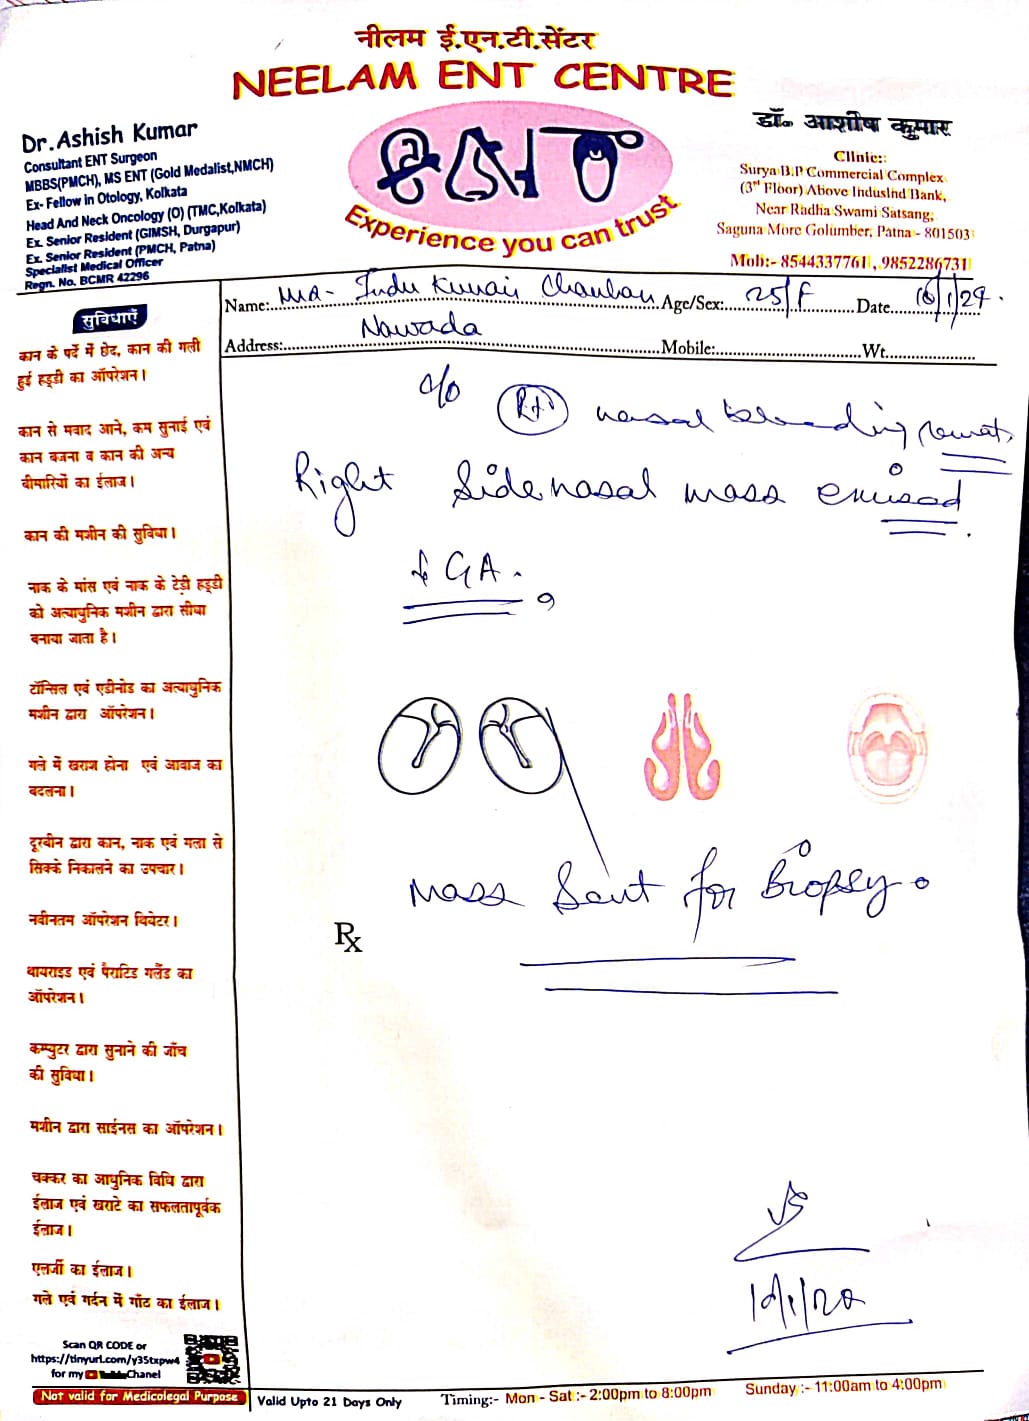 नीलम ई.एन.टी.सेंटर
NEELAM ENT CENTRE
Dr. Ashish Kumar
Consultant ENT Surgeon
MBBS(PMCH), MS ENT (Gold Medalist,NMCH)
Ex- Fellow in Otology, Kolkata
Head And Neck Oncology (O) (TMC,Kolkata)
Ex. Senior Resident (GIMSH, Durgapur)
Ex. Senior Resident (PMCH, Patna)
Specialist Medical Officer
Regn. No. BCMR 42296
Experience you can trust
डॉ० आशीष कुमार
Clinic::
Surya B.P Commercial Complex
(3rd Floor) Above IndusInd Bank,
Near Radha Swami Satsang,
Saguna More Golumber, Patna - 801503
Mob:- 8544337761, 9852286731
Name: Indu Kumari Chauhan Age/Sex: 25/F Date 16/1/24.
Address: Nawada Mobile: Wt.
सुविधाएँ
कान के पर्दे में छेद, कान की गली
हुई हड्डी का ऑपरेशन।
कान से मवाद आने, कम सुनाई एवं
कान बजना व कान की अन्य
बीमारियों का ईलाज।
कान की मशीन की सुविधा।
नाक के मांस एवं नाक के टेड़ी हड्डी
को अत्याधुनिक मशीन द्वारा सीधा
बनाया जाता है।
टॉन्सिल एवं एडीनोड का अत्याधुनिक
मशीन द्वारा ऑपरेशन।
गले में खराश होना एवं आवाज का
बदलना।
दूरबीन द्वारा कान, नाक एवं गला से
सिक्के निकालने का उपचार।
नवीनतम ऑपरेशन थियेटर।
थायराइड एवं पैराटिड गलैंड का
ऑपरेशन।
कम्प्युटर द्वारा सुनाने की जाँच
की सुविधा।
मशीन द्वारा साईनस का ऑपरेशन।
चक्कर का आधुनिक विधि द्वारा
ईलाज एवं खराटे का सफलतापूर्वक
ईलाज।
एलर्जी का ईलाज।
गले एवं गर्दन में गाँठ का ईलाज।
c/o Rt nasal bleeding
Right Side nasal mass excised
GA.
Mass Sent for Biopsy.
Rx
Scan QR CODE or
https://tinyurl.com/y35txpw4
for my YouTube Chanel
Not valid for Medicolegal Purpose
Valid Upto 21 Days Only
Timing:- Mon - Sat :- 2:00pm to 8:00pm
Sunday :- 11:00am to 4:00pm